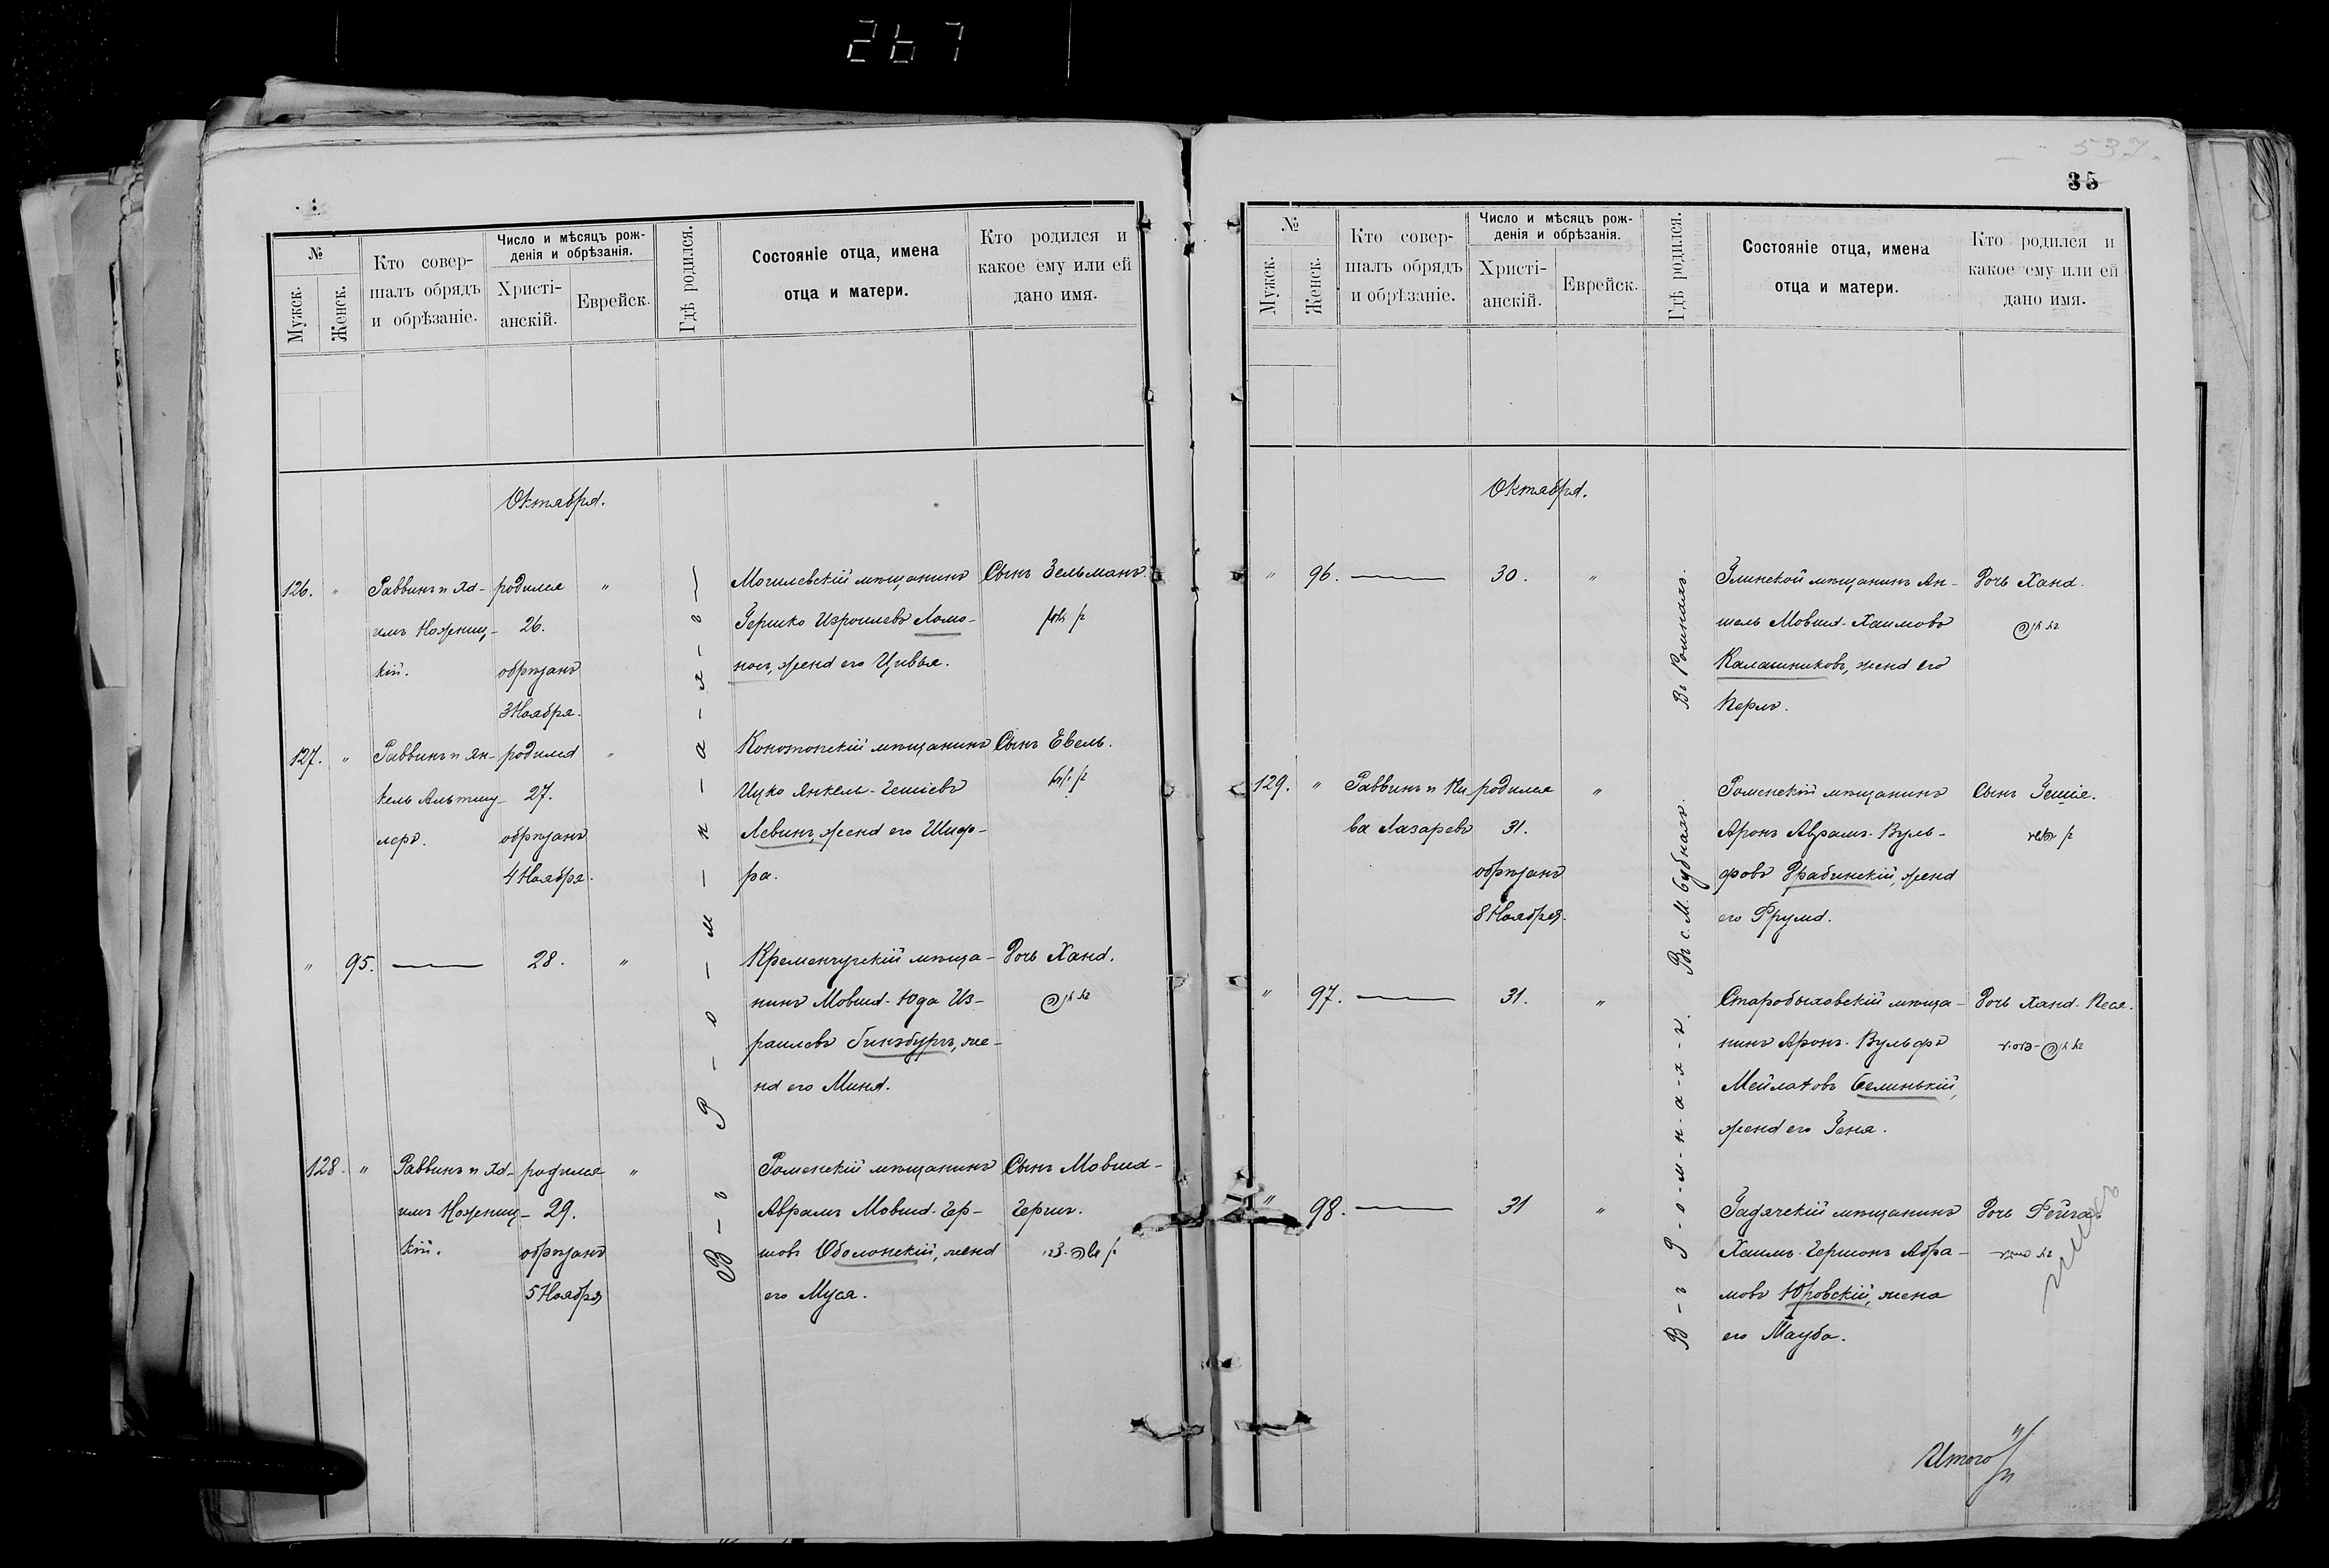 267
№
Мужск.
Женск.
Кто совер-
шалъ обрядъ
и обрѣзаніе.
Число и мѣсяцъ рож-
денія и обрѣзанія.
Христі-
анскій.
Еврейск.
Гдѣ родился.
Состояніе отца, имена
отца и матери.
Кто родился и
какое ему или ей
дано имя.
Октября.
126. " Раввинъ и Ха-
имъ Ножениц-
кій.
родился
26.
обрѣзанъ
3 Ноября.
"
В-ъ Р-о-м-н-а-х-ъ
Могилевскій мѣщанинъ
Гершко Изроилевъ Ломо-
нос, жена его Цивья.
Сынъ Зельманъ.
127. " Раввинъ и Ян-
кель Альтшу-
леръ.
родился
27.
обрѣзанъ
4 Ноября.
"
Конотопскій мѣщанинъ
Ицко Янкель-Гешіевъ
Левинъ, жена его Шиф-
ра.
Сынъ Евель.
" 95. —
28.
"
Кременчугскій мѣща-
нинъ Мовша-Юда Из-
раилевъ Гинзбургъ, же-
на его Миня.
Дочь Хана.
128. " Раввинъ и Ха-
имъ Ножениц-
кій.
родился
29.
обрѣзанъ
5 Ноября
"
Роменскій мѣщанинъ
Аврамъ Мовша-Гер-
шовъ Оболонскій, жена
его Муся.
Сынъ Мовша-
Гершъ.
537.
35
№
Мужск.
Женск.
Кто совер-
шалъ обрядъ
и обрѣзаніе.
Число и мѣсяцъ рож-
денія и обрѣзанія.
Христі-
анскій.
Еврейск.
Гдѣ родился.
Состояніе отца, имена
отца и матери.
Кто родился и
какое ему или ей
дано имя.
Октября.
" 96. —
30.
"
Въ Ромнахъ.
Глинской мѣщанинъ Ан-
шель Мовша-Хаимовъ
Калашниковъ, жена его
Перлъ.
Дочь Хана.
129. " Раввинъ и Ки-
ва Лазаревъ
родился
31.
обрѣзанъ
8 Ноября.
"
Въ с. М. Бубнахъ.
Роменскій мѣщанинъ
Аронъ Аврамъ-Вуль-
фовъ Грабинскій, жена
его Фрума.
Сынъ Гешіе.
" 97. —
31.
"
В-ъ Р-о-м-н-а-х-ъ.
Старобыховскій мѣща-
нинъ Аронъ-Вульфъ
Мейлаховъ Белинькій,
жена его Геня.
Дочь Хана-Песя.
" 98. —
31
"
Гадячскій мѣщанинъ
Хаимъ-Гершонъ Абра-
мовъ Юровскій, жена
его Матуба.
Дочь Рейза
Итого